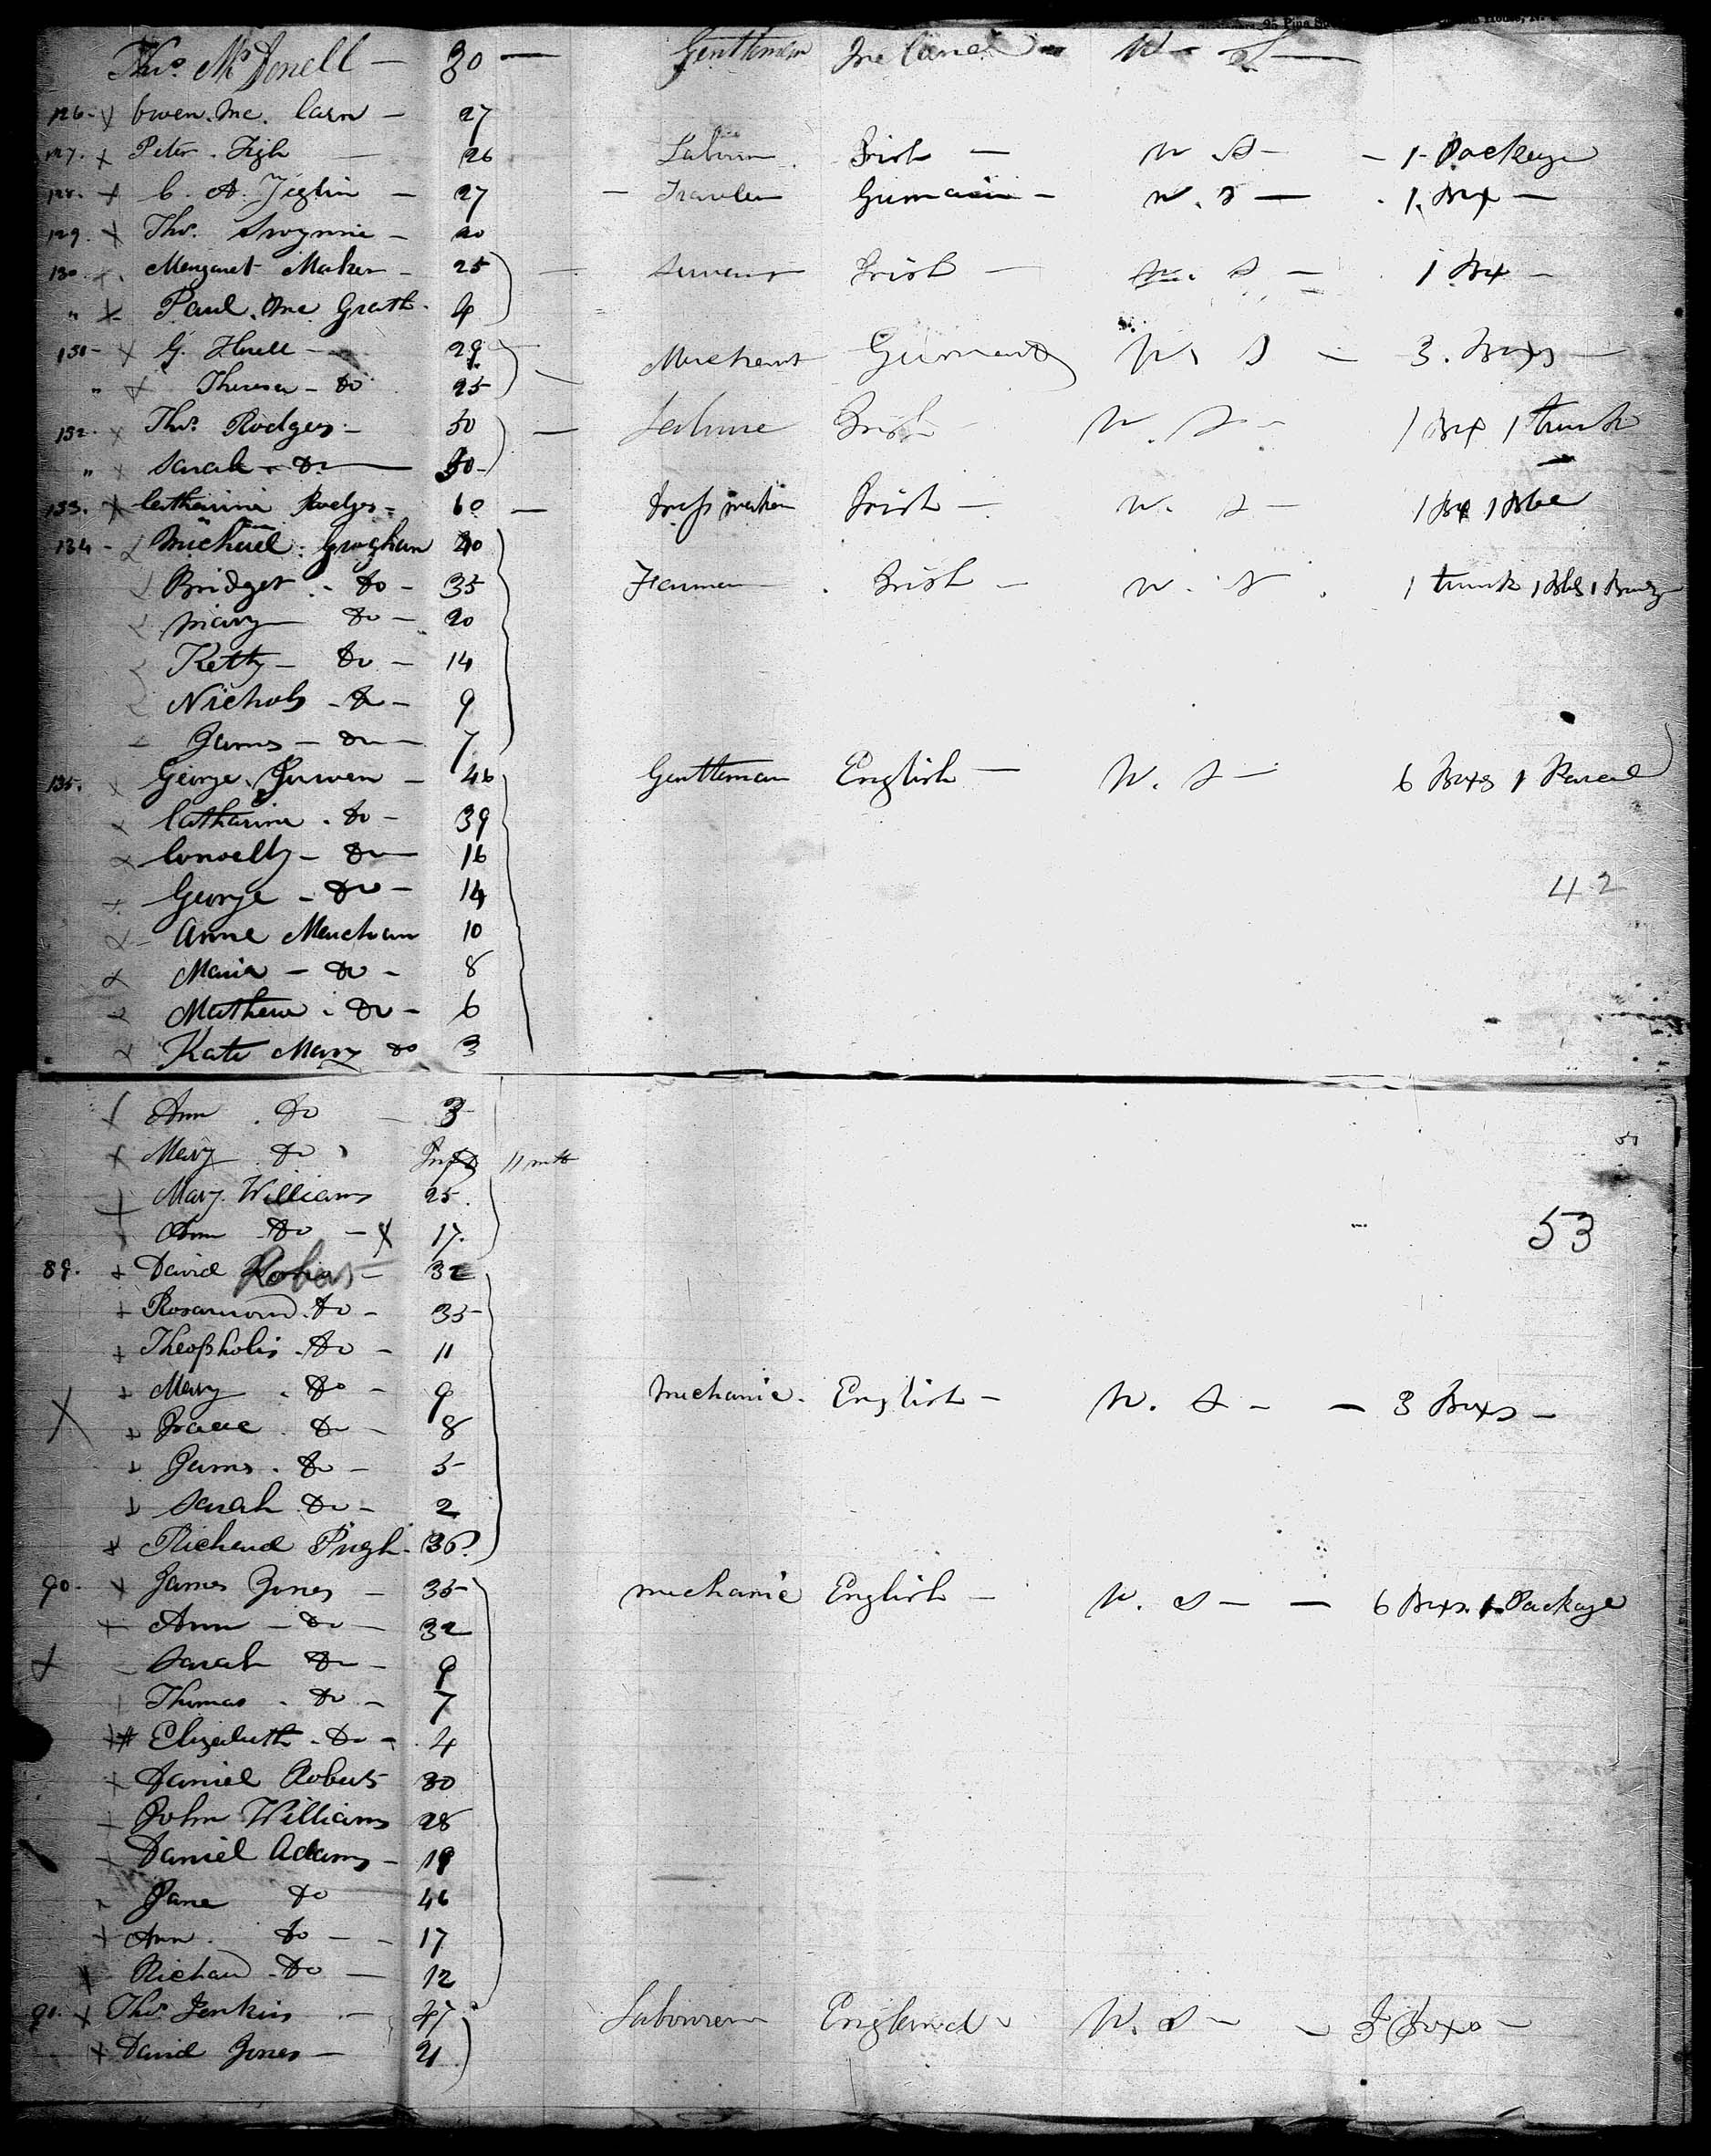 Thos. McDonell — 30 — Gentleman Ireland W S —
126 - x Owen Mc. Carn — 27
127. x Peter. Figh — 26 Labour. Irish — W. S — - 1 Package
128. x C. A. — 27 — Traveler German - W. S — 1. Box —
129. x Thos. — 20
130. x. Margaret Maher - 25 — Servant Irish — W. S — 1 Box -
" x Paul. Mc Grath. 4
131 - x G. — 29 — Merchant W. S — 3. Boxs —
" x Theresa - do 25
132. x Thos. Rodgers - 50 — Labour Irish - W. S - 1 Box 1 trunk
" x Sarah - do — 50 -
133. x Catharine Rodgers - 60 — Dress maker Irish — W. S — 1 Box 1 Bbl
134 - x Michael. Groghan 40
Bridget. - do - 35 Farmer . Irish — W. S . 1 trunk 1 Bbl 1 Bundg
Mary — do — 20
Ketty — do — 14
Nichols - do - 9
James — do — 7
135. x George. — 46 Gentleman English — W. S — 6 Boxs 1 Parcel
x Catharine. do - 39
x Connelly - do — 16
x George - do - 14 42
x - Anne 10
x Maria - do - 8
x Mathew. do - 6
x Kate Mary do 3
x Ann. do — 3
x Mary do Inft 11 mth
x Mary. Williams 25.
Ann do - x 17. 53
89. x David Robers - 32
x Rosamond. do - 35 -
x Theopholis. do - 11
x Mary. do - 9 Mechanic. English — W. S — — 3 Boxs —
x Isaac. do — 8
x James. do — 5
x Sarah do — 2
x Richard Pugh. 36
90. x James Jones — 35 mechanic English — W. S — — 6 Boxs. 1. Package
x Ann — do — 32
x — Sarah do — 9
Thomas. do — 7
x# Elizabeth. do - 4
x Daniel Roberts 30
John Williams 28
x Daniel Adams - 19
x Jane do 46
x Ann. do — 17
x Richard. do — 12
91. x Thos. Jenkins — 47 Labourer England W. S — — 3 Boxs —
x David Jones — 21